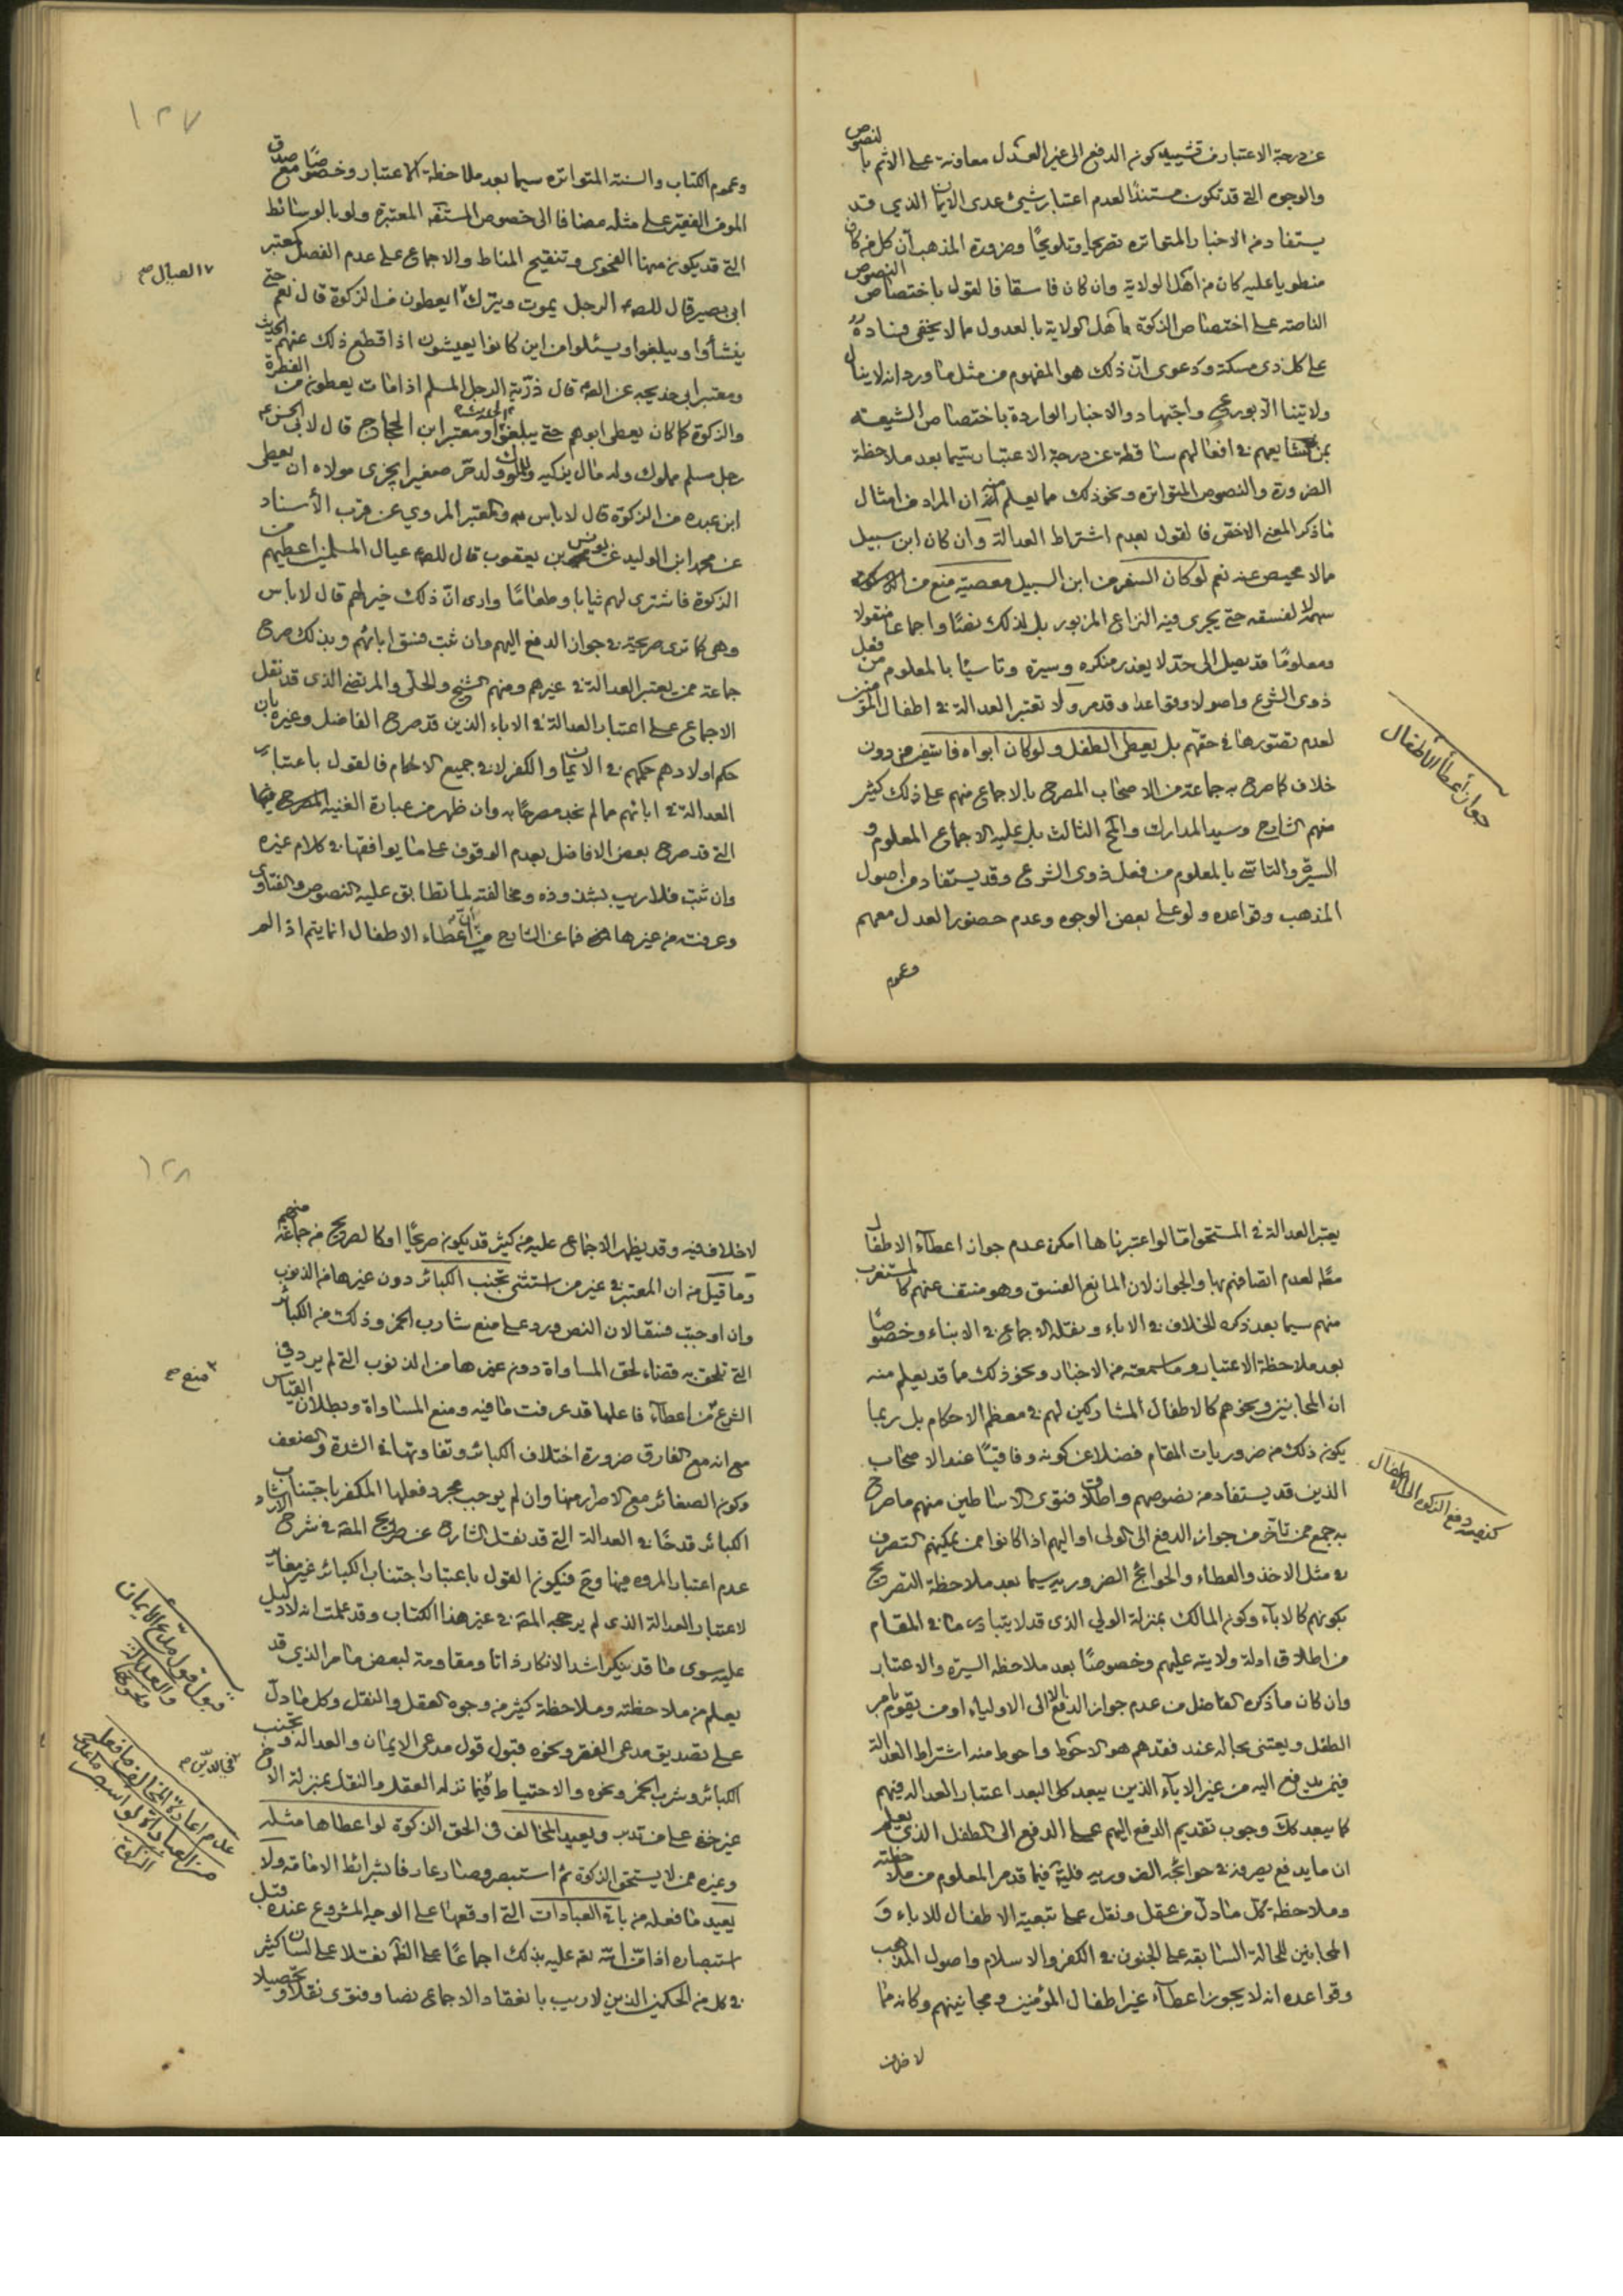 عن درجة الاعتبار في تشييد كون الدفع الى غير العدل معاونة على الاثم بالنصوص
والوجوه التي قد تكون مستندًا لعدم اعتبار شيئ عدى الايمان الذي قد
يستفاد من الاخبار المتواتره تصريحا وتلويحًا وضرورة المذهب ان كل من كان
منطويا عليه كان من اهل الولاية وان كان فاسقا فالقول باختصاص النصوص
الناصة على اختصاص الزكوة باهل الولاية بالعدول مما لا يخفى فساده
على كل ذى مسكة ودعوى ان ذلك هو المفهوم من مثل ما ورد انه لا ينال
ولايتنا الا بورع واجتهاد والاخبار الواردة باختصاص الشيعة
بمن يشايعهم في افعالهم ساقطة عن درجة الاعتبار سيما بعد ملاحظة
الضرورة والنصوص المتواتره ونحو ذلك مما يعلم منه ان المراد من امثال
ما ذكر المعنى الاخص فالقول بعدم اشتراط العدالة وان كان ابن سبيل
مما لا محيص عنه نعم لو كان السفر من ابن السبيل معصية منع من الزكوة
سهمه لا لفسقه حتى يجرى فيه النزاع المزبور بل لذلك نصًا واجماعا منقولا
ومعلومًا قد يصل الى حد لا يعذر منكره وسيرة وتاسيًا بالمعلوم من فعل
ذوى الشرع واصولا وقواعدا وقد مر ولا تعتبر العدالة في اطفال المؤمنين
لعدم تصورها في حقهم بل يعطى الطفل ولو كان ابواه فاسقين من دون
خلاف كما صرح به جماعة من الاصحاب المصرح بالاجماع منهم على ذلك كثير
منهم الشارح وسيد المدارك والمح الثالث بل عليه الاجماع المعلوم و
السيرة والتاسى بالمعلوم من فعل ذوى الشرع وقد يستفاد من اصول
المذهب وقواعده ولو على بعض الوجوه وعدم حضور العدل معهم
وعموم
جواز أعطأ الأطفال
١٢٧
وعموم الكتاب والسنة المتواتره سيما بعد ملاحظة الاعتبار وخصوصًا مع صدق
المومن الفقير على مثله مضافا الى خصوص المستفيضة المعتبرة ولو بالوسائط
التي قد يكون منها الفحوى وتنقيح المناط والاجماع على عدم الفصل كمعتبر
ابى بصير قال للصه الرجل يموت ويترك ايعطون من الزكوة قال نعم حتى
ينشأوا ويبلغوا ويسئلوا من اين كانوا يعيشون اذا قطع ذلك عنهم الحديث
ومعتبر ابى خديجه عن الصه قال ذرية الرجل المسلم اذا مات يعطون من الفطرة
والزكوة كما كان يعطى ابوهم حتى يبلغوا الحديث ومعتبر ابن الحجاج قال لابى الحسن ع
رجل مسلم مملوك وله مال يزكيه وللمملوك ولد حر صغير ايجزى مولاه ان يعطى
ابن عبده من الزكوة قال لا باس به والمعتبر المروي عن قرب الأسناد
عن محمد ابن الوليد عن يونس بن يعقوب قال للصه عيال المسلمين اعطيهم من
الزكوة فاشترى لهم ثيابا وطعامًا وارى ان ذلك خير لهم قال لا باس
وهى كما ترى صريحة في جواز الدفع اليهم وان ثبت فسق ابائهم وبذلك صرح
جماعة ممن يعتبر العدالة في غيرهم ومنهم الشيخ والحلى والمرتضى الذى قد نقل
الاجماع على اعتبار العدالة في الاباء الذين قد صرح الفاضل وغيره بان
حكم اولادهم حكمهم في الايمان والكفر لا في جميع الاحكام فالقول باعتبار
العدالة في ابائهم مما لم نجد مصرحًا به وان ظهر من عبارة الغنيه المصرح فيها
التي قد صرح بعض الافاضل بعدم الوقوف على ما يوافقها في كلام غيره
وان ثبت فلا ريب بشذوذه ومخالفته لما تطابق عليه النصوص والفتاوى
وعرفت من غيرها فما عن الشارح من أن اعطاء الاطفال انما يتم اذا لم
العيال صح
يعتبر العدالة في المستحق اما لو اعتبرناها امكن عدم جواز اعطآء الاطفال
مطلقا لعدم اتصافهم بها والجواز لان المانع الفسق وهو منتف عنهم كالمستغرب
منهم سيما بعد ذكره للخلاف في الاباء ونقله الاجماع في الابناء وخصوصًا
بعد ملاحظة الاعتبار وما سمعته من الاخبار ونحو ذلك ما قد يعلم منه
ان المجانين ونحوهم كالاطفال المشاركين لهم في معظم الاحكام بل ربما
يكون ذلك من ضروريات المقام فضلا عن كونه وفاقيًا عند الاصحاب
الذين قد يستفاد من نصوصهم واطلاق فتوى الاساطين منهم ما صرح
به جمع ممن تأخر من جواز الدفع الى الولى او اليهم اذا كانوا ممن يمكنهم التصرف
في مثل الاخذ والعطاء والحوائج الضروريه سيما بعد ملاحظة التصريح
بكونهم كالاباء وكون المالك بمنزلة الولي الذى قد لا يتبادر مما في المقام
من اطلاق ادلة ولايته عليهم وخصوصًا بعد ملاحظة السيرة والاعتبار
وان كان ما ذكره الفاضل من عدم جواز الدفع الا الى الاولياء او من يقوم بامر
الطفل ويعتنى بحاله عند فقدهم هو الاحوط واحوط منه اشتراط العدالة
فيمن يدفع اليه من غير الاباء الذين يبعد كل البعد اعتبار العداله فيهم
كما يبعد كك وجوب تقديم الدفع اليهم على الدفع الى الطفل الذى يعلم
ان ما يدفع يصرفه في حوائجه الضروريه فليتأمل فيما قد مر المعلوم من ملاحظته
وملاحظة كل ما دل من عقل ونقل على تبعية الاطفال للاباء و
المجانين للحالة السابقه على الجنون في الكفر والاسلام واصول المذهب
وقواعده انه لا يجوز اعطآء غير اطفال المؤمنين ومجانينهم وكانه مما
لا خلاف
كيفيه دفع الزكوه الى الاطفال
١٢٨
لا خلاف فيه وقد يظهر الاجماع عليه من كثير قد يكون صريحًا او كالصريح من جماعة منهم
وما قيل من ان المعتبر في غير من استثنى تجنب الكبائر دون غيرها من الذنوب
وان اوجبت فسقا لان النص ورد على منع شارب الخمر وذلك من الكبائر
التي تلحق به قضاء لحق المساواة دون غيرها من الذنوب التي لم يرد في
الشرع من اعطآء فاعلها قد عرفت ما فيه ومنع المساواة وبطلان القياس
مع انه مع الفارق ضرورة اختلاف الكبائر وتفاوتها في الشدة والضعف
وكون الصغائر مع الاصرار منها وان لم يوجب مجرد فعلها المكفر باجتناب
الكبائر قدحًا في العدالة التي قد نقل الشارح عن صريح المصة في شرح الارشاد
عدم اعتبار المروه فيها وح فيكون القول باعتبار اجتناب الكبائر غير مغاير
لاعتبار العدالة الذى لم يرجحه المصة في غير هذا الكتاب وقد علمت انه لا دليل
عليه سوى ما قد ينكر اشد الانكار ذاتا ومقاومة لبعض ما مر الذي قد
يعلم من ملاحظته وملاحظة كثير من وجوه العقل والنقل وكل ما دل
على تصديق مدعى الفقر ونحوه قبول قول مدعى الايمان والعداله وتجنب
الكبائر وشرب الخمر ونحوه والاحتياط فيما نزله العقل والنقل بمنزلة الاخ
غير خفى على من تدبر ويعيد المخالف في الحق الزكوة لو اعطاها مثله
وغيره ممن لا يستحق الزكوة ثم استبصر وصار عارفا بشرائط الامامة ولا
يعيد ما فعله من باقي العبادات التي اوقعها على الوجه المشروع عنده قبل
استبصاره اذا من الله تعه عليه بذلك اجماعًا على الظه نقلا على لسان كثير
في كل من الحكمين الذين لا ريب بانعقاد الاجماع نصا وفتوى نقلا وتحصيلا
منع صح
قبول قول مدعى الأيمان والعدالة ونحوها
في الدين م
عدم اعادة المخالف ما فعله من العبادات لو استبصر ما عدى الزكوة